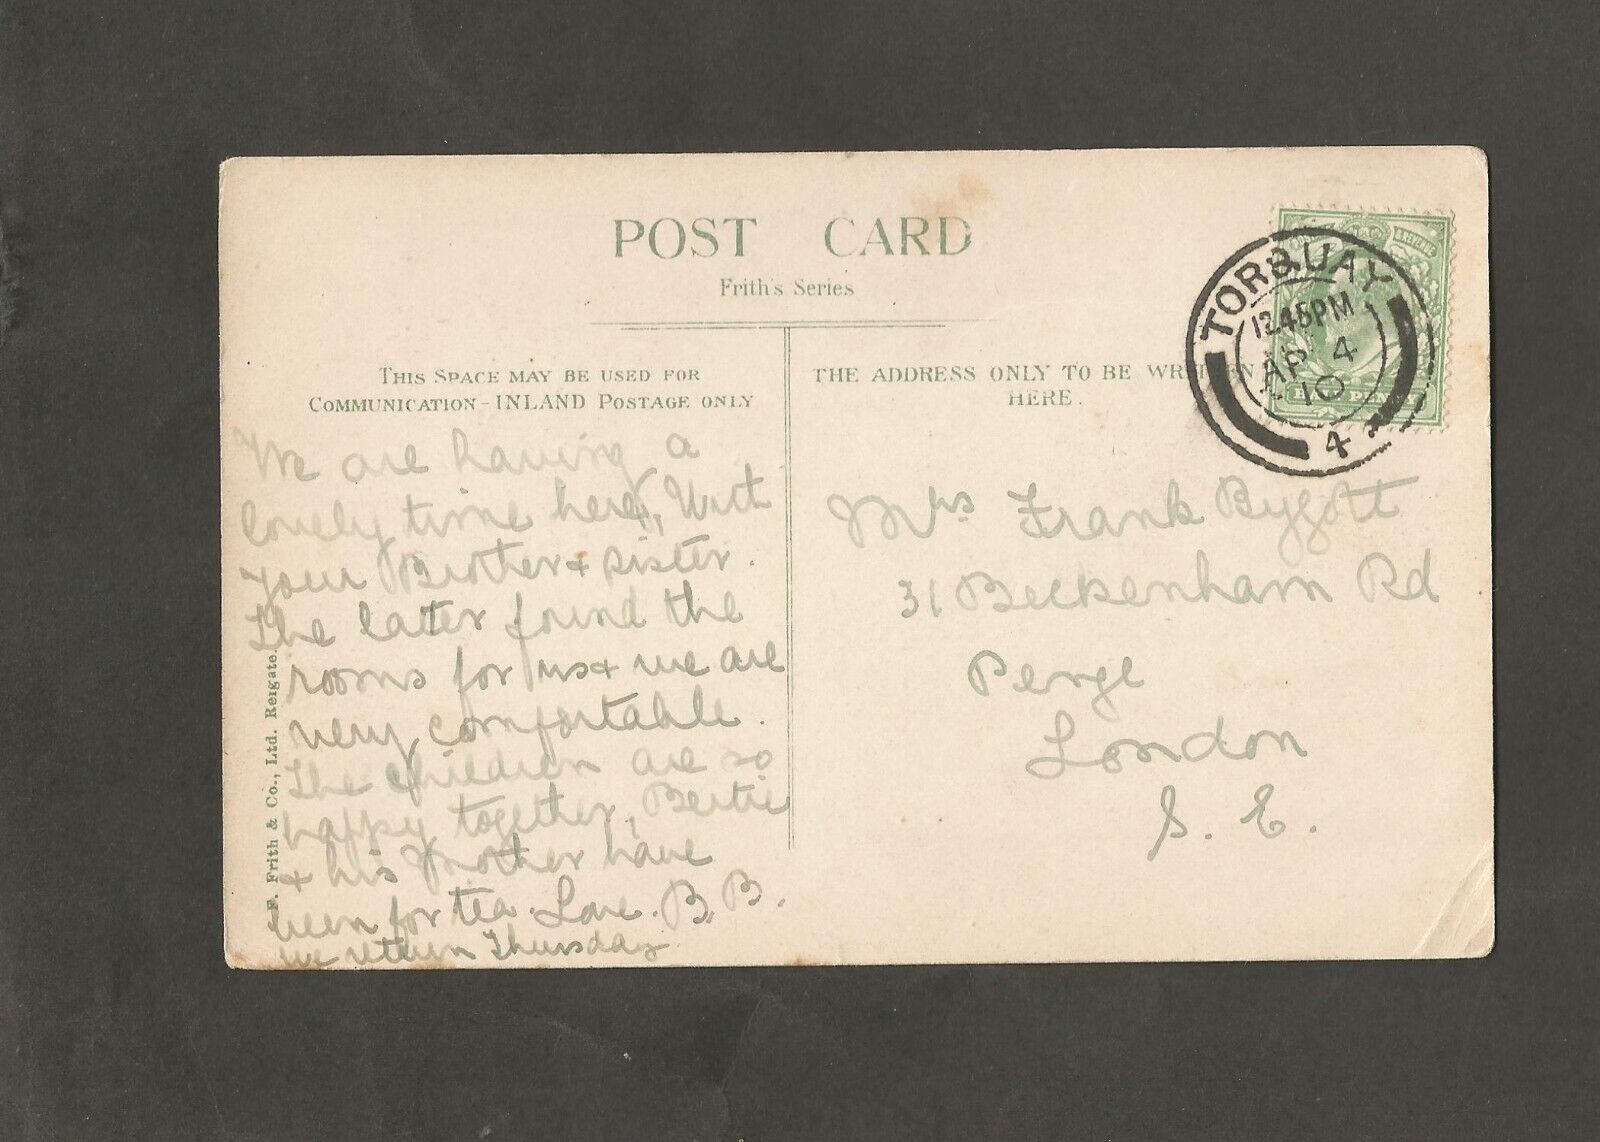 POST CARD
Frith's Series
THIS SPACE MAY BE USED FOR
COMMUNICATION-INLAND POSTAGE ONLY
THE ADDRESS ONLY TO BE WRITTEN
HERE.
TORQUAY
12.45PM
AP 4
10
4
We are having a
lovely time here, With
your Brother & sister.
The latter found the
rooms for us & we are
very comfortable.
The children are so
happy together, Bertie
& his Mother have
been for tea. Love. B. B.
we return Thursday
Mrs Frank Bygott
31 Beckenham Rd
Penge
London
S. E.
F. Frith & Co., Ltd. Reigate.